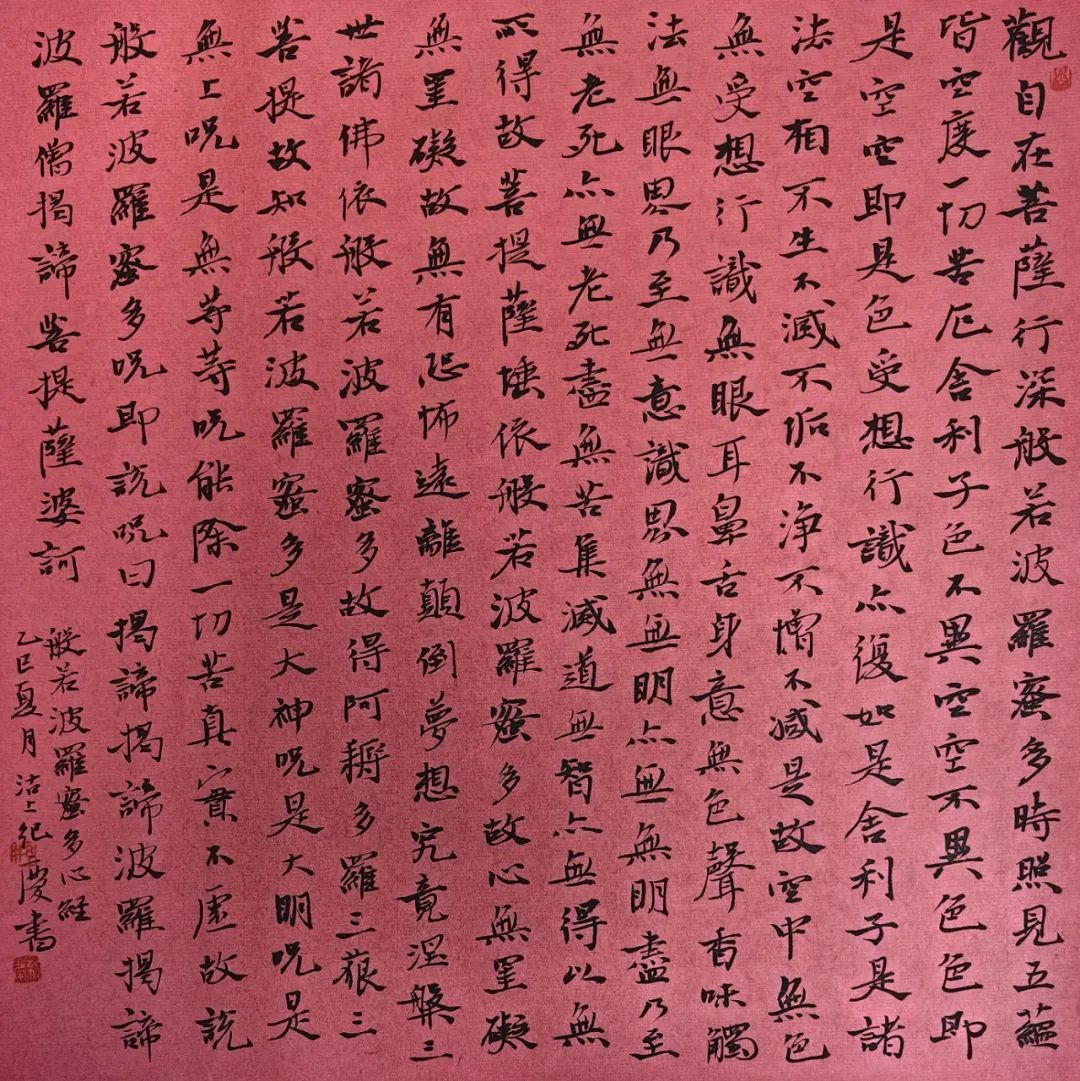 觀自在菩薩行深般若波羅蜜多時照見五蘊
皆空度一切苦厄舍利子色不異空空不異色色即
是空空即是色受想行識亦復如是舍利子是諸
法空相不生不滅不垢不淨不增不減是故空中無色
無受想行識無眼耳鼻舌身意無色聲香味觸
法無眼界乃至無意識界無無明亦無無明盡乃至
無老死亦無老死盡無苦集滅道無智亦無得以無
所得故菩提薩埵依般若波羅蜜多故心無罣礙
無罣礙故無有恐怖遠離顛倒夢想究竟涅槃三
世諸佛依般若波羅蜜多故得阿耨多羅三藐三
菩提故知般若波羅蜜多是大神咒是大明咒是
無上咒是無等等咒能除一切苦真實不虛故說
般若波羅蜜多咒即說咒曰揭諦揭諦波羅揭諦
波羅僧揭諦菩提薩婆訶
般若波羅蜜多心經
乙巳夏月沽上紀慶書